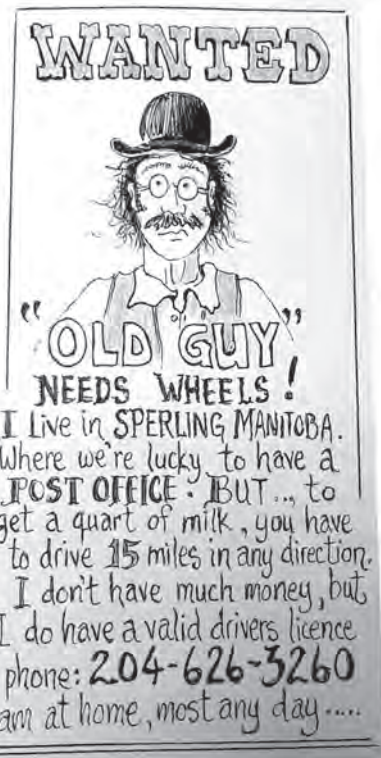 WANTED
"OLD GUY"
NEEDS WHEELS!
I Live in SPERLING MANITOBA.
Where we're lucky to have a
POST OFFICE. BUT..., to
get a quart of milk, you have
to drive 15 miles in any direction.
I don't have much money, but
I do have a valid drivers licence
phone: 204-626-3260
am at home, most any day.....